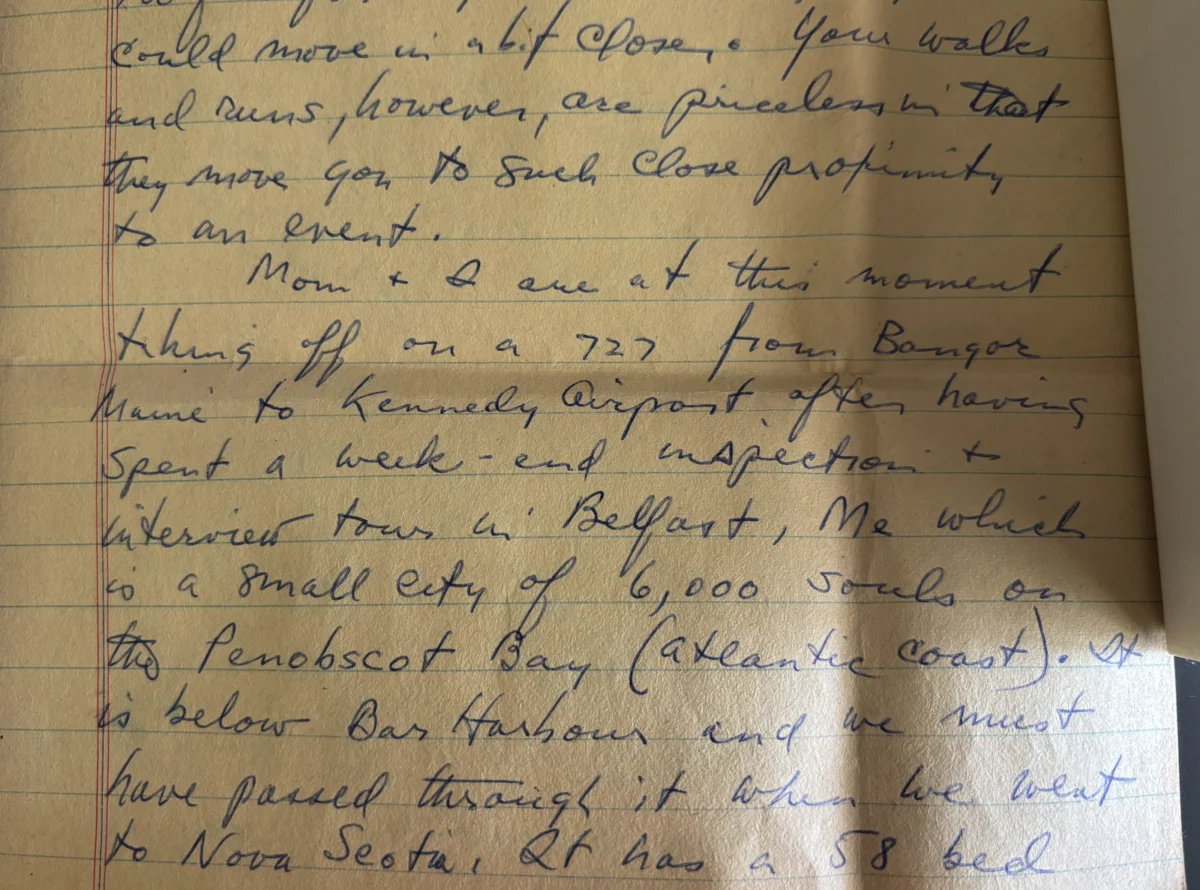 could move in a bit closer. Your walks
and runs, however, are priceless in that
they move you to such close proximity
to an event.
Mom + I are at this moment
taking off on a 727 from Bangor
Maine to Kennedy Airport after having
spent a week-end inspection +
interview tour in Belfast, Me which
is a small city of 6,000 souls on
the Penobscot Bay (Atlantic coast). It
is below Bar Harbour and we must
have passed through it when we went
to Nova Scotia. It has a 58 bed